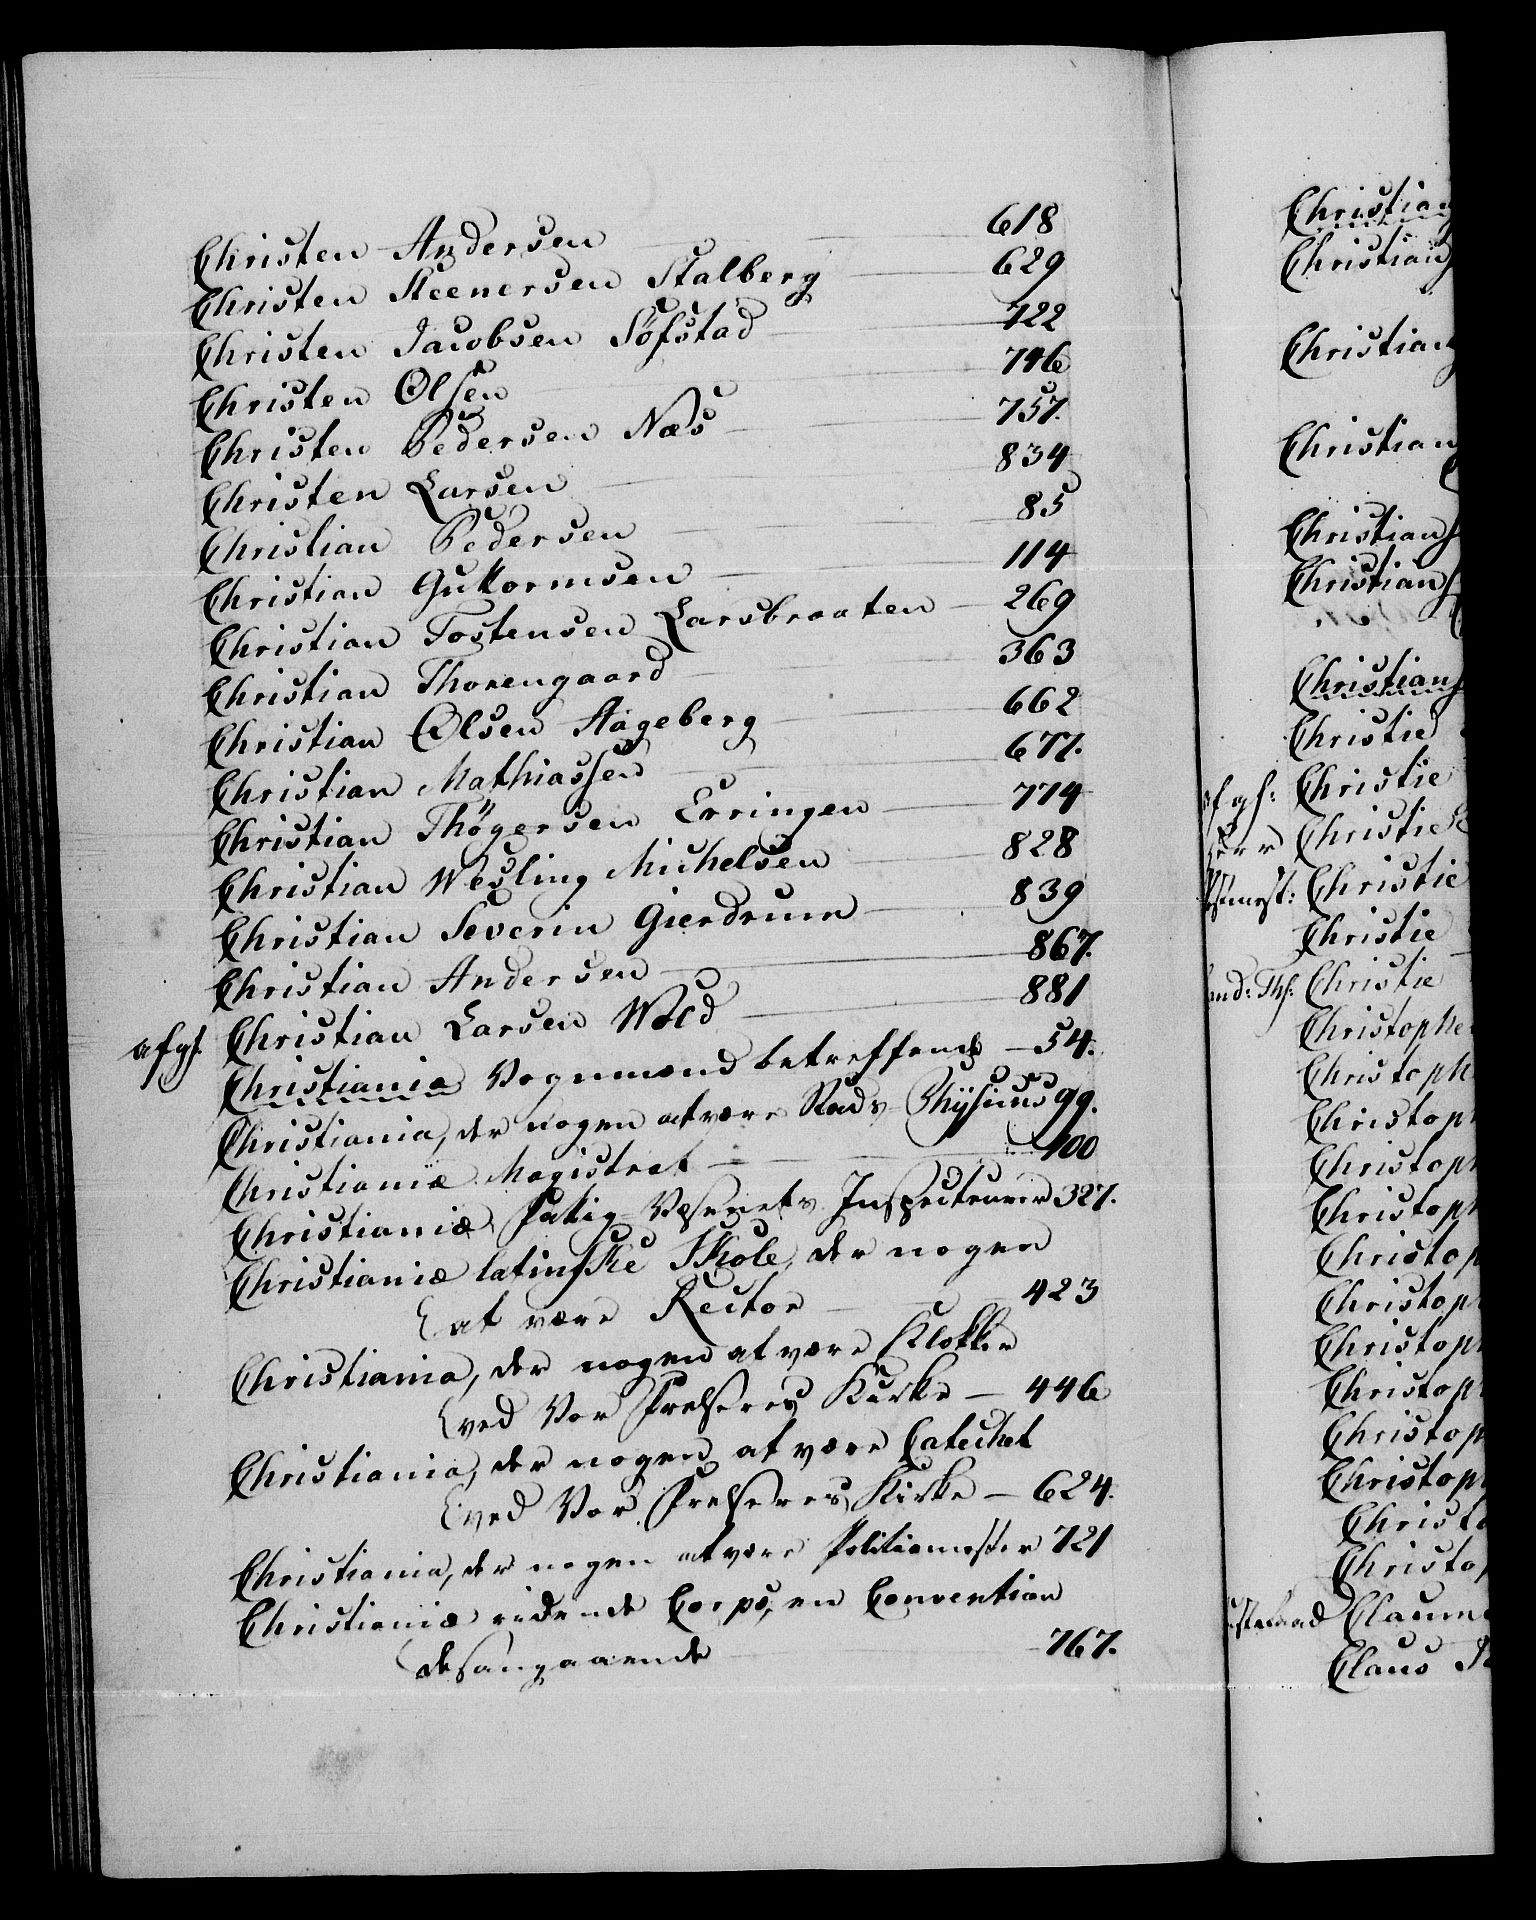 Christen Andersen 618
Christen Steenersen Stalberg 629
Christen Jacobsen Söfstad 722
Christen Olsen 746
Christen Pedersen Næs 757.
Christen Larsen 834
Christian Pedersen 85
Christian Guttormsen 114
Christian Tostensen Larsbraaten 269
Christian Thorengaard 363
Christian Olsen Hageberg 662
Christian Mathiassen 677.
Christian Thögersen Erringen 774
Christian Wesling Michelsen 828
Christian Severin Gierdrum 839
Christian Andersen 867.
afgl. Christian Larsen Wold 881
Christiania Vognmænd betreffende 54.
Christiania, der nogen at være Stads Physicus 99.
Christianiæ Magistrat 100
Christianiæ Fattig-Væsenets Inspecteurer 327.
Christianiæ latinske Skole, der nogen
at være Rector 423
Christiania, der nogen at være Klokker
ved Vor Frelseres Kirke 446
Christiania, der nogen at være Catechet
ved Vor Frelseres Kirke 624.
Christiania, der nogen at være Politiemester 721
Christianiæ ridende Corps, en Convention
desangaaende 767.
Christian
Christian
Christian
Christian
Christian
Christian
Christian
Christie
Christie
Christie
Christie
Christie
Christie
Christophe
Christoph
Christoph
Christoph
Christoph
Christop
Christoph
Christoph
Christoph
Christop
Christoph
Christo
Christop
Claum
Claus